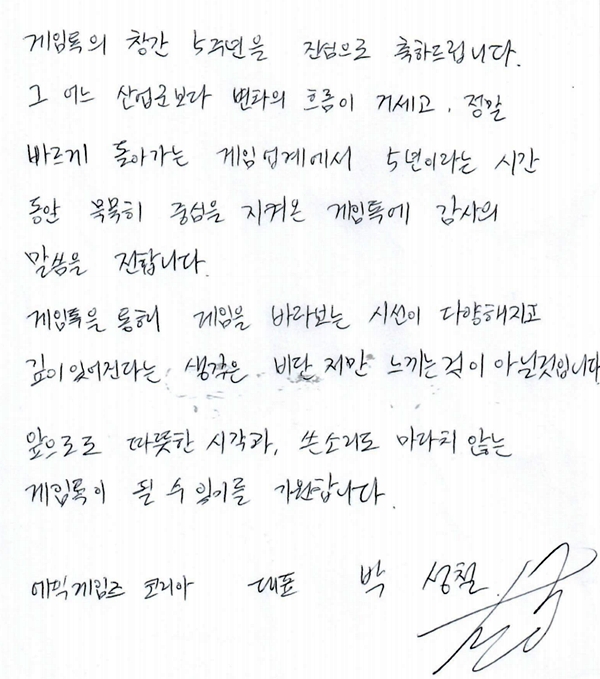 게임톡의 창간 5주년을 진심으로 축하드립니다.
그 어느 산업군보다 변화의 흐름이 거세고, 정말
바르게 돌아가는 게임업계에서 5년이라는 시간
동안 묵묵히 중심을 지켜온 게임톡에 감사의
말씀을 전합니다.
게임톡을 통해 게임을 바라보는 시선이 다양해지고
깊이있어진다는 생각은 비단 저만 느끼는 것이 아닐것입니다
앞으로도 따뜻한 시각과, 쓴소리도 마다치 않는
게임톡이 될 수 있기를 기원합니다.
에픽게임즈 코리아 대표 박 성철